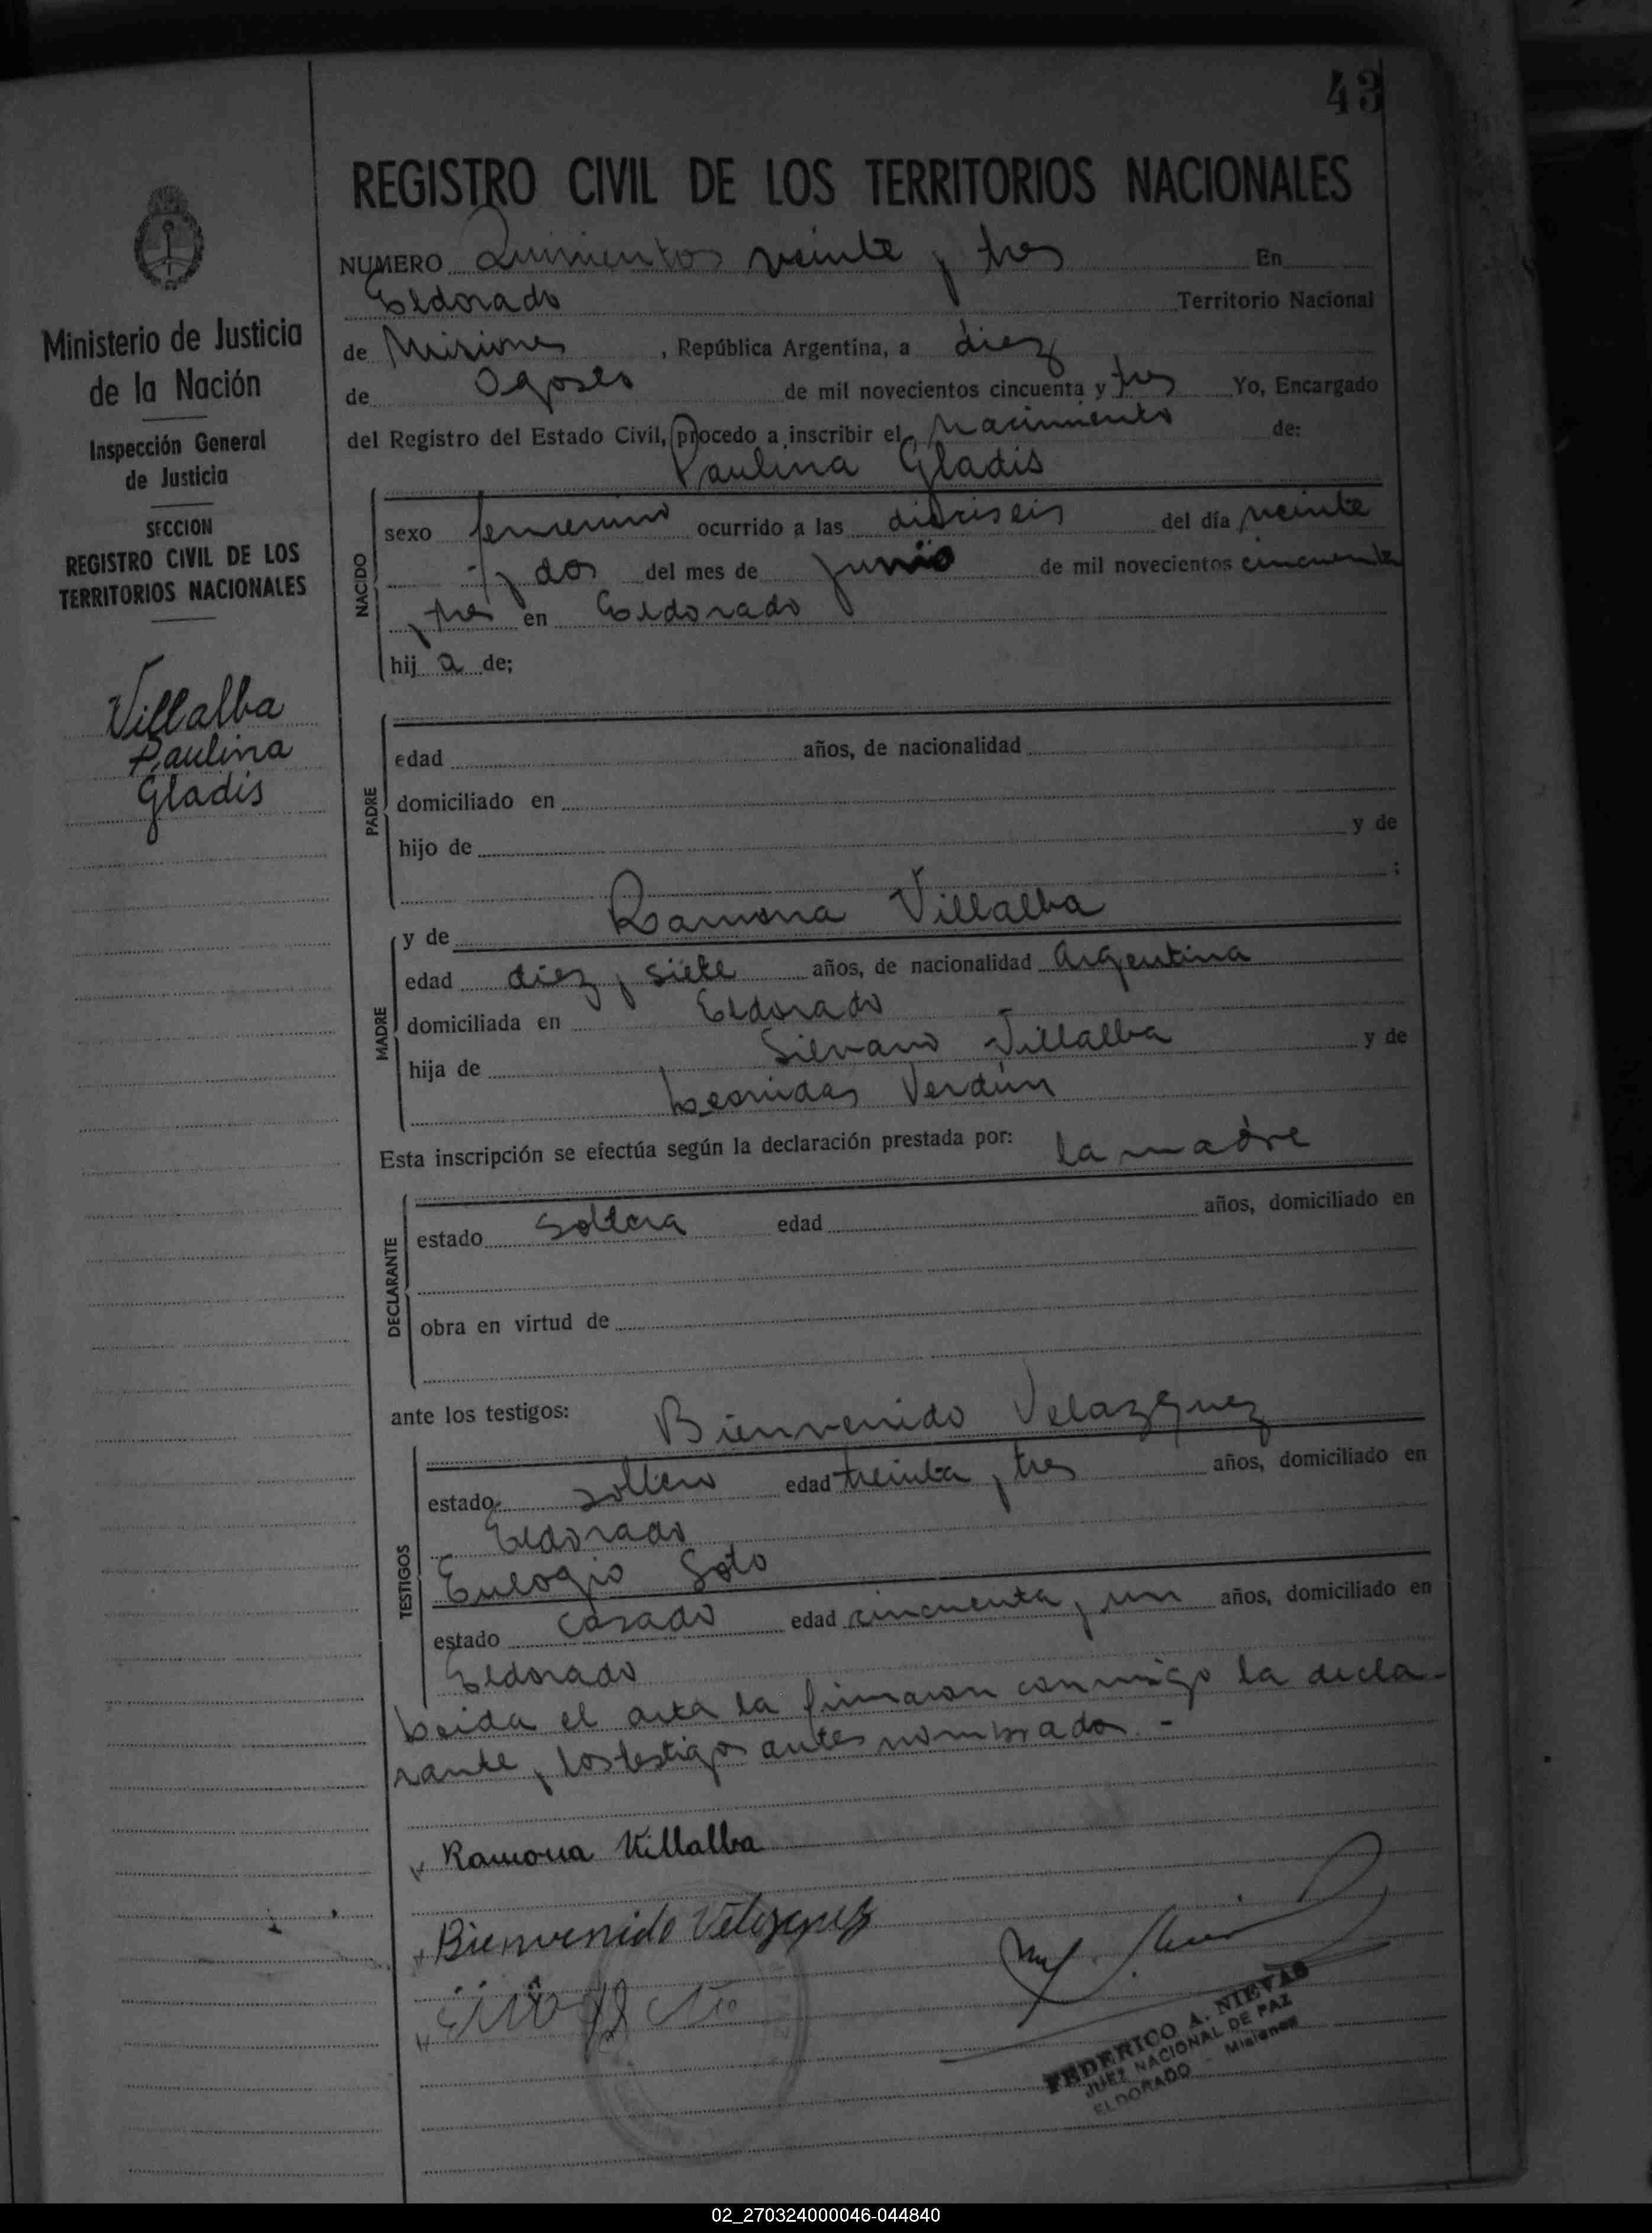 43
REGISTRO CIVIL DE LOS TERRITORIOS NACIONALES
Ministerio de Justicia
de la Nación
Inspección General
de Justicia
SECCION
REGISTRO CIVIL DE LOS
TERRITORIOS NACIONALES
Villalba
Paulina
Gladis
NUMERO Quinientos veinte y tres En
Eldorado Territorio Nacional
de Misiones, República Argentina, a diez
de Agosto de mil novecientos cincuenta y tres Yo, Encargado
del Registro del Estado Civil, procedo a inscribir el nacimiento de:
Paulina Gladis
NACIDO
sexo femenino ocurrido a las dieciseis del día veinte
y dos del mes de junio de mil novecientos cincuenta
y tres en Eldorado
hij a de;
PADRE
edad años, de nacionalidad
domiciliado en
hijo de y de
;
y de Ramona Villalba
MADRE
edad diez y siete años, de nacionalidad Argentina
domiciliada en Eldorado
hija de Silvano Villalba y de
Leonidas Verdún
Esta inscripción se efectúa según la declaración prestada por: la madre
DECLARANTE
estado Soltera edad años, domiciliado en
obra en virtud de
ante los testigos: Bienvenido Velazquez
TESTIGOS
estado soltero edad treinta y tres años, domiciliado en
Eldorado
Eulogio Soto
estado casado edad cincuenta y un años, domiciliado en
Eldorado
Leida el acta la firmaron conmigo la decla-
rante y los testigos antes nombrados.-
Ramona Villalba
Bienvenido Velazquez
FEDERICO A. NIEVAS
JUEZ NACIONAL DE PAZ
ELDORADO - Misiones
02_270324000046-044840